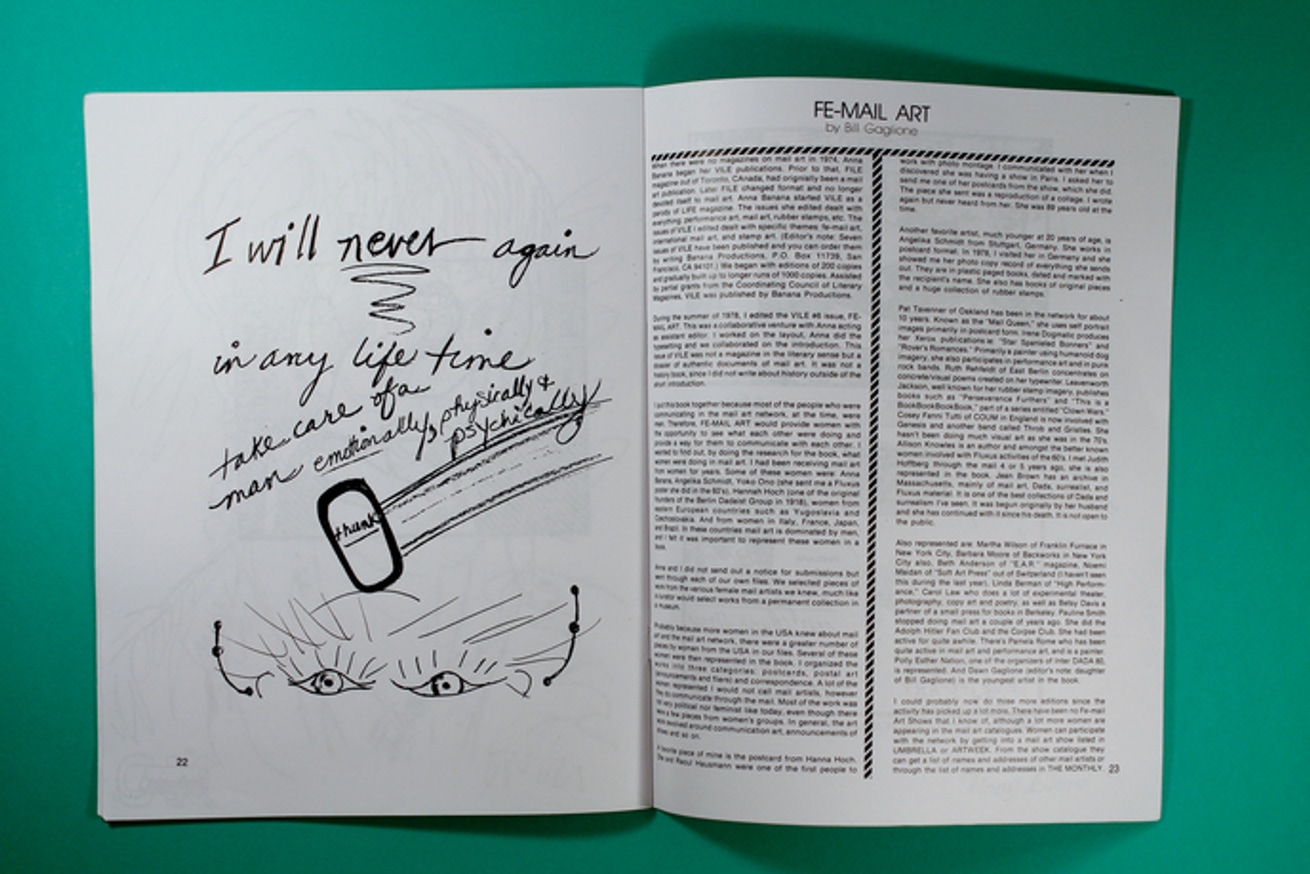 I will never again
in any life time
take care of a
man emotionally, physically &
psychically
thunk
22
FE-MAIL ART
by Bill Gaglione
When there were no magazines on mail art in 1974, Anna
Banana began her VILE publications. Prior to that, FILE
magazine out of Toronto, CAnada, had originially been a mail
art publication. Later FILE changed format and no longer
devoted itself to mail art. Anna Banana started VILE as a
parody of LIFE magazine. The issues she edited dealt with
everything performance art, mail art, rubber stamps, etc. The
issues of VILE I edited dealt with specific themes: fe-mail art,
international mail art, and stamp art. (Editor's note: Seven
issues of VILE have been published and you can order them
by writing Banana Productions, P.O. Box 11739, San
Francisco, CA 94101.) We began with editions of 200 copies
and gradually built up to longer runs of 1000 copies. Assisted
by partial grants from the Coordinating Council of Literary
Magazines, VILE was published by Banana Productions.
During the summer of 1978, I edited the VILE #6 issue, FE-
MAIL ART. This was a collaborative venture with Anna acting
as assistant editor. I worked on the layout, Anna did the
typesetting and we collaborated on the introduction. This
issue of VILE was not a magazine in the literary sense but a
dossier of authentic documents of mail art. It was not a
history book, since I did not write about history outside of the
short introduction.
I put this book together because most of the people who were
communicating in the mail art network, at the time, were
men. Therefore, FE-MAIL ART would provide women with
the opportunity to see what each other were doing and
provide a way for them to communicate with each other. I
wanted to find out, by doing the research for the book, what
women were doing in mail art. I had been receiving mail art
from women for years. Some of these women were: Anna
Banana, Angelika Schmidt, Yoko Ono (she sent me a Fluxus
poster she did in the 60's), Hennah Hoch (one of the original
founders of the Berlin Dadaist Group in 1918), women from
eastern European countries such as Yugoslavia and
Czechoslovakia. And from women in Italy, France, Japan,
and Brazil. In these countries mail art is dominated by men,
and I felt it was important to represent these women in a
book.
Anna and I did not send out a notice for submissions but
went through each of our own files. We selected pieces of
work from the various female mail artists we knew, much like
a curator would select works from a permanent collection in
a museum.
Probably because more women in the USA knew about mail
art and the mail art network, there were a greater number of
pieces by women from the USA in our files. Several of these
women were then represented in the book. I organized the
works into three categories: postcards, postal art
(announcements and fliers) and correspondence. A lot of the
women represented I would not call mail artists, however
they do communicate through the mail. Most of the work was
not very political nor feminist like today, even though there
was a few pieces from women's groups. In general, the art
work evolved around communication art, announcements of
shows and so on.
A favorite piece of mine is the postcard from Hanna Hoch.
She and Raoul Hausmann were one of the first people to
work with photo montage. I communicated with her when I
discovered she was having a show in Paris. I asked her to
send me one of her postcards from the show, which she did.
The piece she sent was a reproduction of a collage. I wrote
again but never heard from her. She was 89 years old at the
time.
Another favorite artist, much younger at 20 years of age, is
Angelika Schmidt from Stuttgart, Germany. She works in
postcard format. In 1978, I visited her in Germany and she
showed me her photo copy record of everything she sends
out. They are in plastic paged books, dated and marked with
the recipient's name. She also has books of original pieces
and a huge collection of rubber stamps.
Pat Tavenner of Oakland has been in the network for about
10 years. Known as the "Mail Queen," she uses self portrait
images primarily in postcard form. Irene Dogmatic produces
her Xerox publications ie: "Star Spanieled Banners" and
"Rover's Romances." Primarily a painter using humanoid dog
imagery, she also participates in performance art and in punk
rock bands. Ruth Rehfeldt of East Berlin concentrates on
concrete/visual poems created on her typewriter. Leavenworth
Jackson, well known for her rubber stamp imagery, publishes
books such as "Perseverance Furthers" and "This is a
BookBookBookBook," part of a series entitled "Clown Wars."
Cosey Fanni Tutti of COUM in England is now involved with
Genesis and another band called Throb and Gristles. She
hasn't been doing much visual art as she was in the 70's.
Allison Knowles is an author and amongst the better known
women involved with Fluxus activities of the 60's. I met Judith
Hoffberg through the mail 4 or 5 years ago, she is also
represented in the book. Jean Brown has an archive in
Massachusetts, mainly of mail art, Dada, surrealist, and
Fluxus material. It is one of the best collections of Dada and
surrealism I've seen. It was begun originally by her husband
and she has continued with it since his death. It is not open to
the public.
Also represented are: Martha Wilson of Franklin Furnace in
New York City, Barbara Moore of Backworks in New York
City also, Beth Anderson of "E.A.R." magazine, Noemi
Maidan of "Soft Art Press" out of Switzerland (I haven't seen
this during the last year), Linda Berman of "High Perform-
ance," Carol Law who does a lot of experimental theater,
photography, copy art and poetry, as well as Betsy Davis a
partner of a small press for books in Berkeley. Pauline Smith
stopped doing mail art a couple of years ago. She did the
Adolph Hitler Fan Club and the Corpse Club. She had been
active for quite awhile. There's Pamela Rome who has been
quite active in mail art and performance art, and is a painter.
Polly Esther Nation, one of the organizers of Inter DADA 80,
is represented. And Dawn Gaglione (editor's note: daughter
of Bill Gaglione) is the youngest artist in the book.
I could probably now do three more editions since the
activity has picked up a lot more. There have been no Fe-mail
Art Shows that I know of, although a lot more women are
appearing in the mail art catalogues. Women can participate
with the network by getting into a mail art show listed in
UMBRELLA or ARTWEEK. From the show catalogue they
can get a list of names and addresses of other mail artists or
through the list of names and addresses in THE MONTHLY.
23